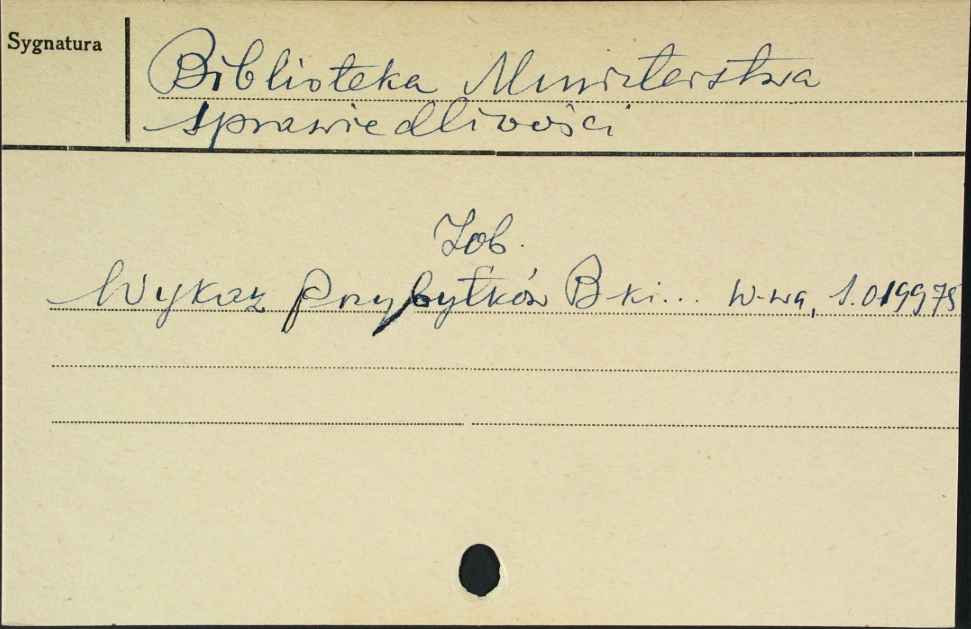 Sygnatura
Biblioteka Ministerstwa
sprawiedliwości
Zob.
Wykaz Przybytków B-ki... W-wa, S.019975